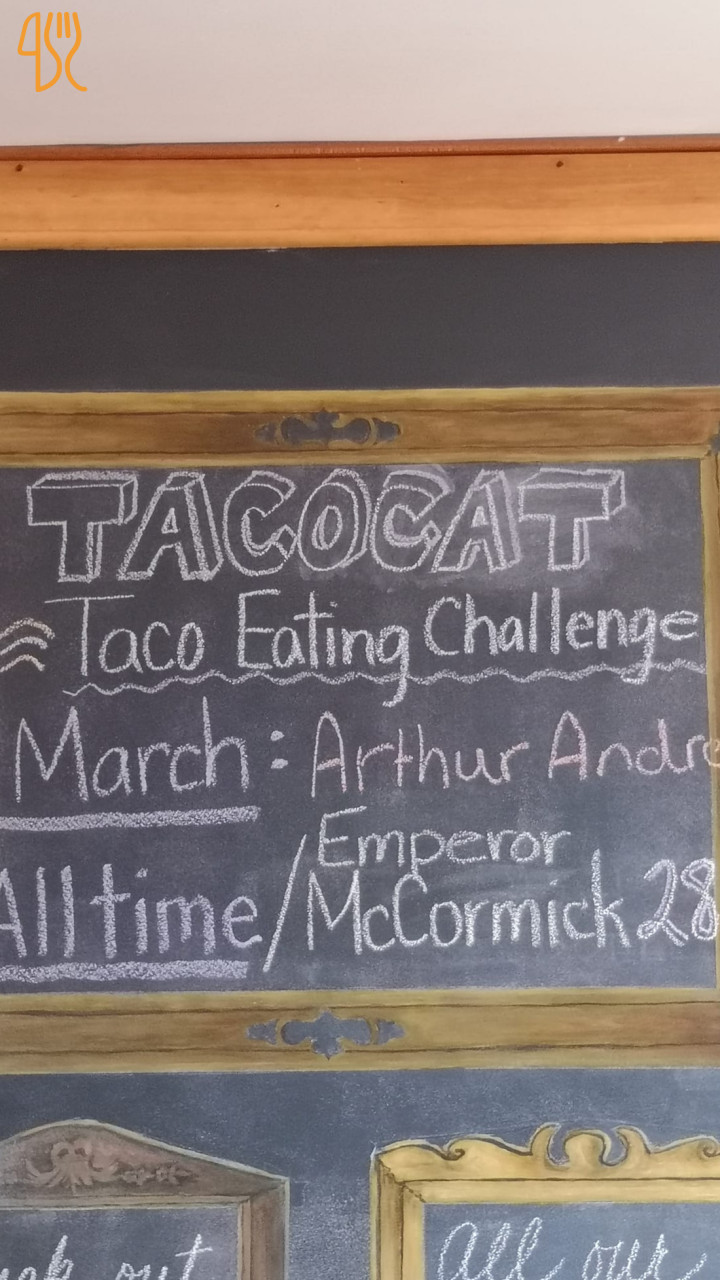 TACOCAT
Taco Eating Challenge
March: Arthur Andre
Emperor
All time/McCormick 28
out
All our